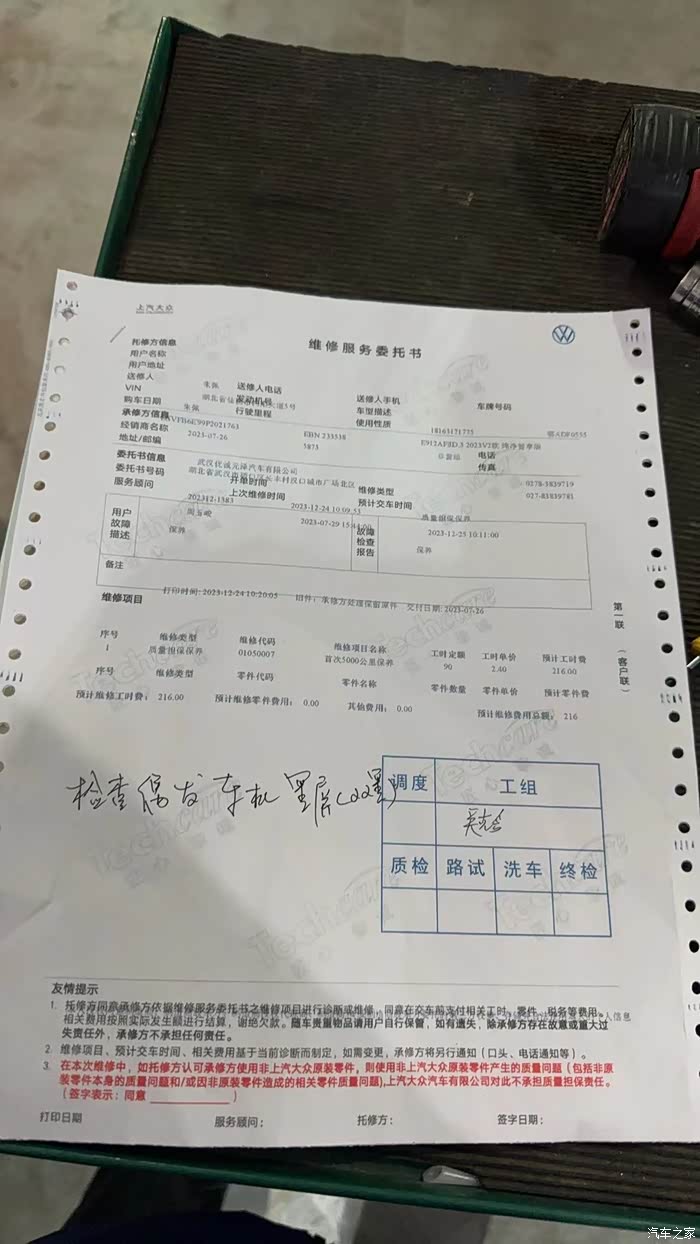 上汽大众
维修服务委托书
托修方信息
用户名称
用户地址
送修人 朱佩 送修人电话
VIN 湖北省仙 发动机号 送修人手机 车牌号码
购车日期 朱佩 行驶里程 车型描述
承修方信息 使用性质 18163171775
经销商名称 2023-07-26 EBN 233538
地址/邮编 5873 电话
武汉优诚元泽汽车有限公司 传真
委托书信息 0278-5839719
委托书号码 开单时间 维修类型 027-83839781
服务顾问 上次维修时间 预计交车时间
202312-1383 2023-12-24 10:09:53 质量担保保养
用户故障描述 2023-07-29 15:44:00 故障检查报告 2023-12-25 10:11:00
保养 保养
备注
打印时间: 2023-12-24 10:20:05 旧件: 承修方处理保留原件 交付日期: 2023-07-26
维修项目
第一联 (客户联)
序号 维修类型 维修代码 维修项目名称 工时定额 工时单价 预计工时费
1 质量担保保养 01050007 首次5000公里保养 90 2.40 216.00
序号 维修类型 零件代码 零件名称 零件数量 零件单价 预计零件费
预计维修工时费: 216.00 预计维修零件费用: 0.00 其他费用: 0.00 预计维修费用总额: 216
检查偶发车机黑屏
调度 工组
质检 路试 洗车 终检
友情提示
1. 托修方同意承修方依据维修服务委托书之维修项目进行诊断或维修,同意在交车前支付相关工时、零件、税务等费用。
相关费用按照实际发生额进行结算,谢绝欠款。随车贵重物品请用户自行保管,如有遗失,除承修方存在故意或重大过
失责任外,承修方不承担任何责任。
2. 维修项目、预计交车时间、相关费用基于当前诊断而制定,如需变更,承修方将另行通知(口头、电话通知等)。
3. 在本次维修中,如托修方认可承修方使用非上汽大众原装零件,则使用非上汽大众原装零件产生的质量问题(包括非原
装零件本身的质量问题和/或因非原装零件造成的相关零件质量问题),上汽大众汽车有限公司对此不承担质量担保责任。
(签字表示:同意 )
打印日期 服务顾问: 托修方: 签字日期:
汽车之家